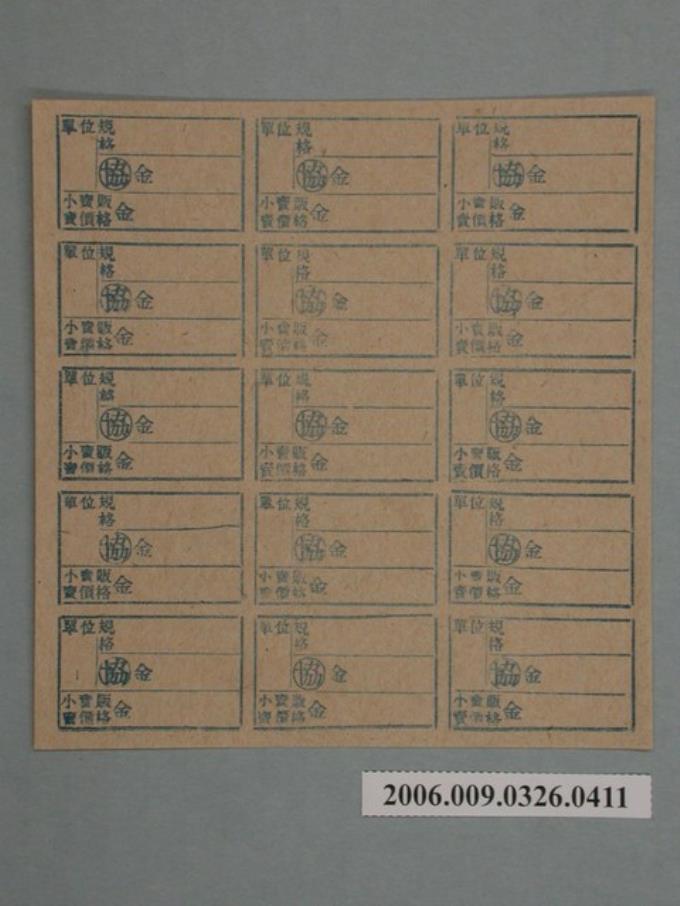 單位規
格
協 金
小賣販
賣價格 金
單位規
格
協 金
小賣販
賣價格 金
單位規
格
協 金
小賣販
賣價格 金
單位規
格
協 金
小賣販
賣價格 金
單位規
格
協 金
小賣販
賣價格 金
單位規
格
協 金
小賣販
賣價格 金
單位規
格
協 金
小賣販
賣價格 金
單位規
格
協 金
小賣販
賣價格 金
單位規
格
協 金
小賣販
賣價格 金
單位規
格
協 金
小賣販
賣價格 金
單位規
格
協 金
小賣販
賣價格 金
單位規
格
協 金
小賣販
賣價格 金
單位規
格
協 金
小賣販
賣價格 金
單位規
格
協 金
小賣販
賣價格 金
單位規
格
協 金
小賣販
賣價格 金
2006.009.0326.0411